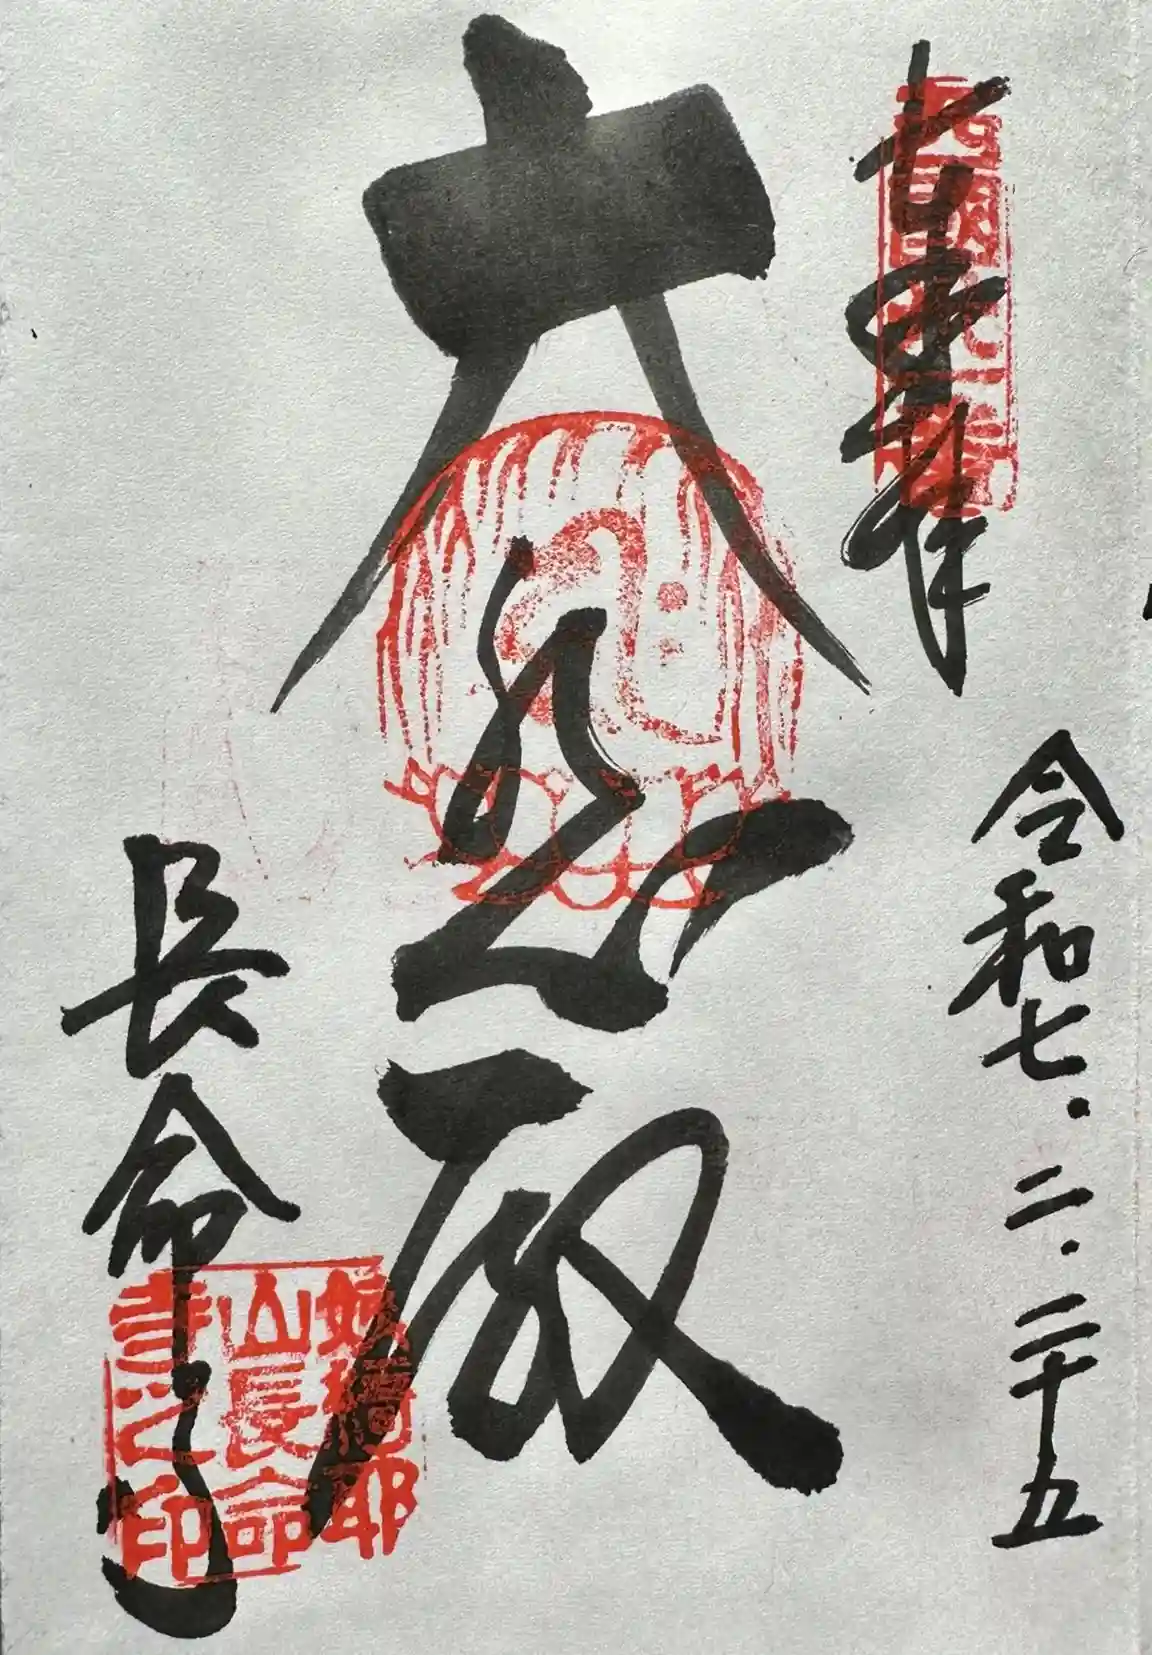 奉拝
令和七.二.二十五
大悲殿
長命寺
西国三十一番
姨綺耶山長命寺之印